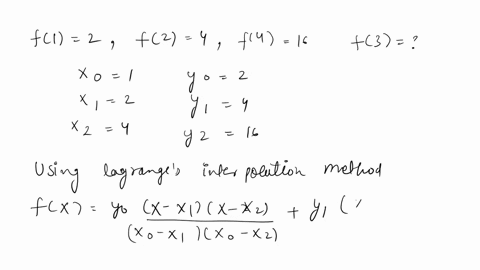 f(1) = 2 , f(2) = 4 , f(4) = 16 f(3) = ?
x0 = 1 y0 = 2
x1 = 2 y1 = 4
x2 = 4 y2 = 16
Using lagrange's interpolution method
f(x) = y0 (x-x1)(x-x2) / (x0-x1)(x0-x2) + y1 (